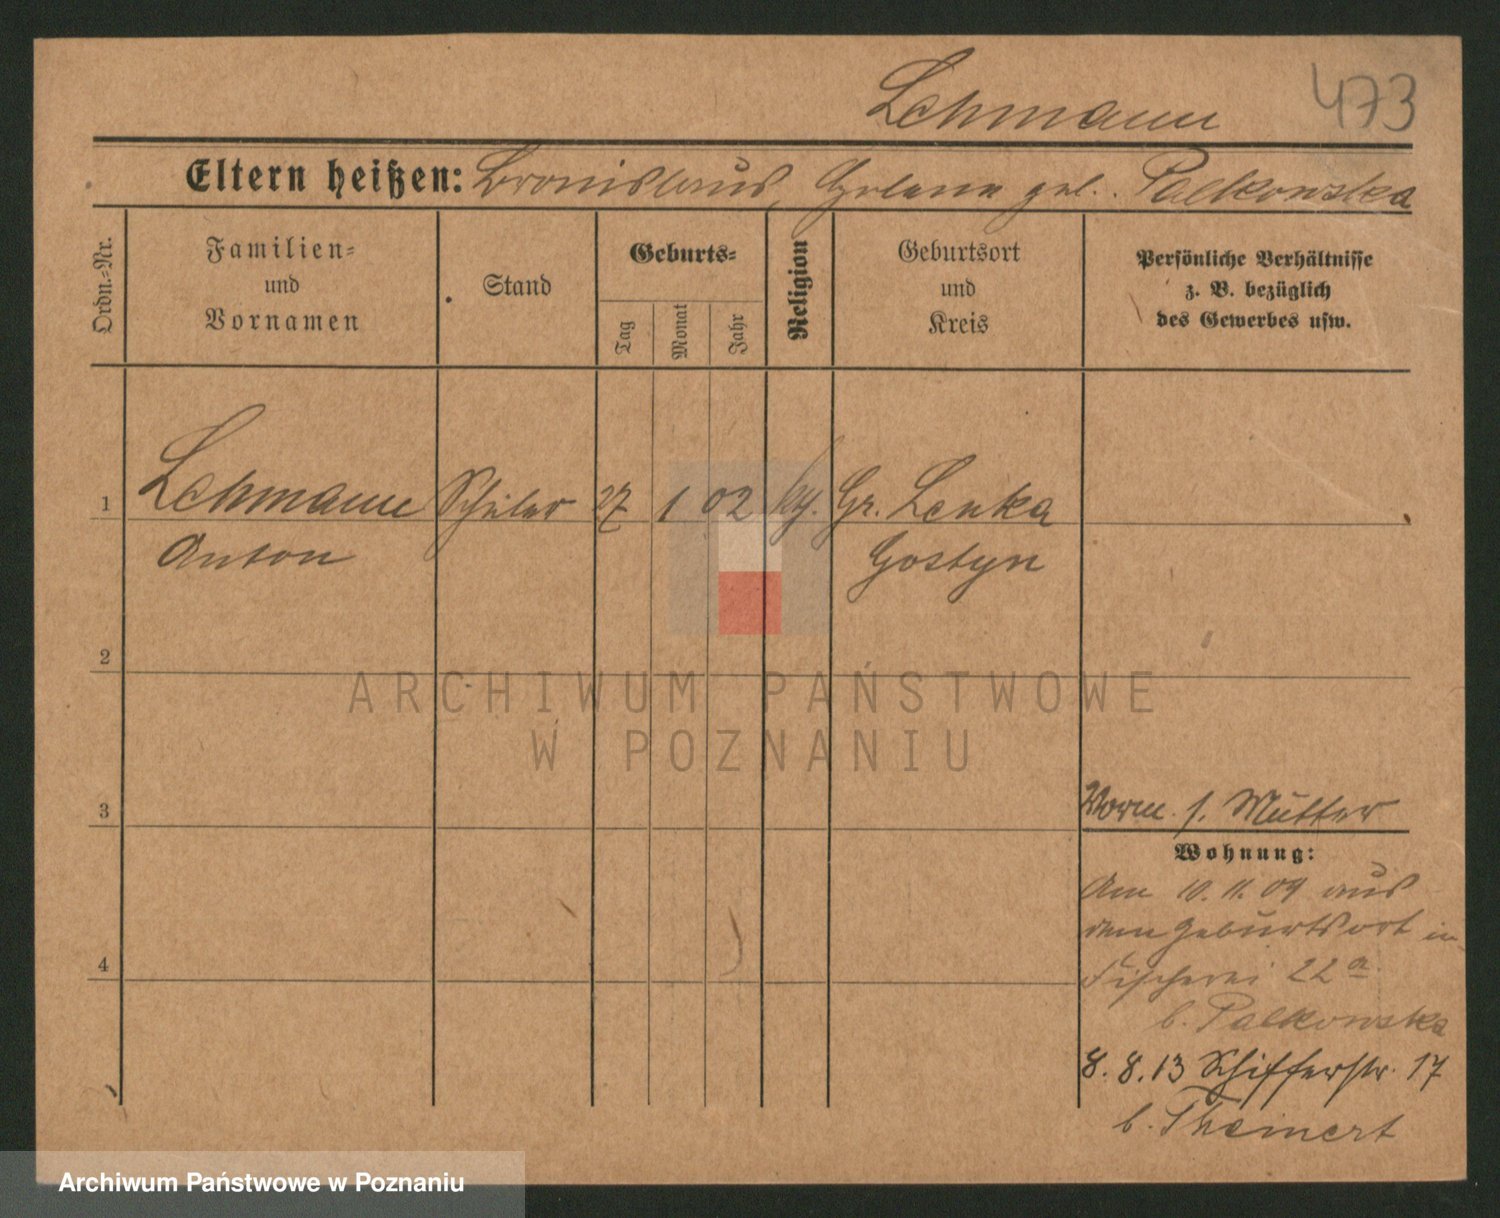 Lehmann 473
Eltern heißen: Bronislaus, Helene geb. Palkowska
Ordn.-Nr.
Familien-
und
Vornamen
Stand
Geburts-
Tag
Monat
Jahr
Religion
Geburtsort
und
Kreis
Persönliche Verhältnisse
z. B. bezüglich
des Gewerbes usw.
1 Lehmann Schüler 27 1 02 kth. Gr. Lenka
Anton Gostyn
2
ARCHIWUM PAŃSTWOWE
W POZNANIU
3 Vorm. s. Mutter
Wohnung:
Am 10. 11. 09 aus
dem Geburtsort in
4 Fischerei 22a
b. Palkowska
8. 8. 13 Schifferstr. 17
b. Theinert
Archiwum Państwowe w Poznaniu